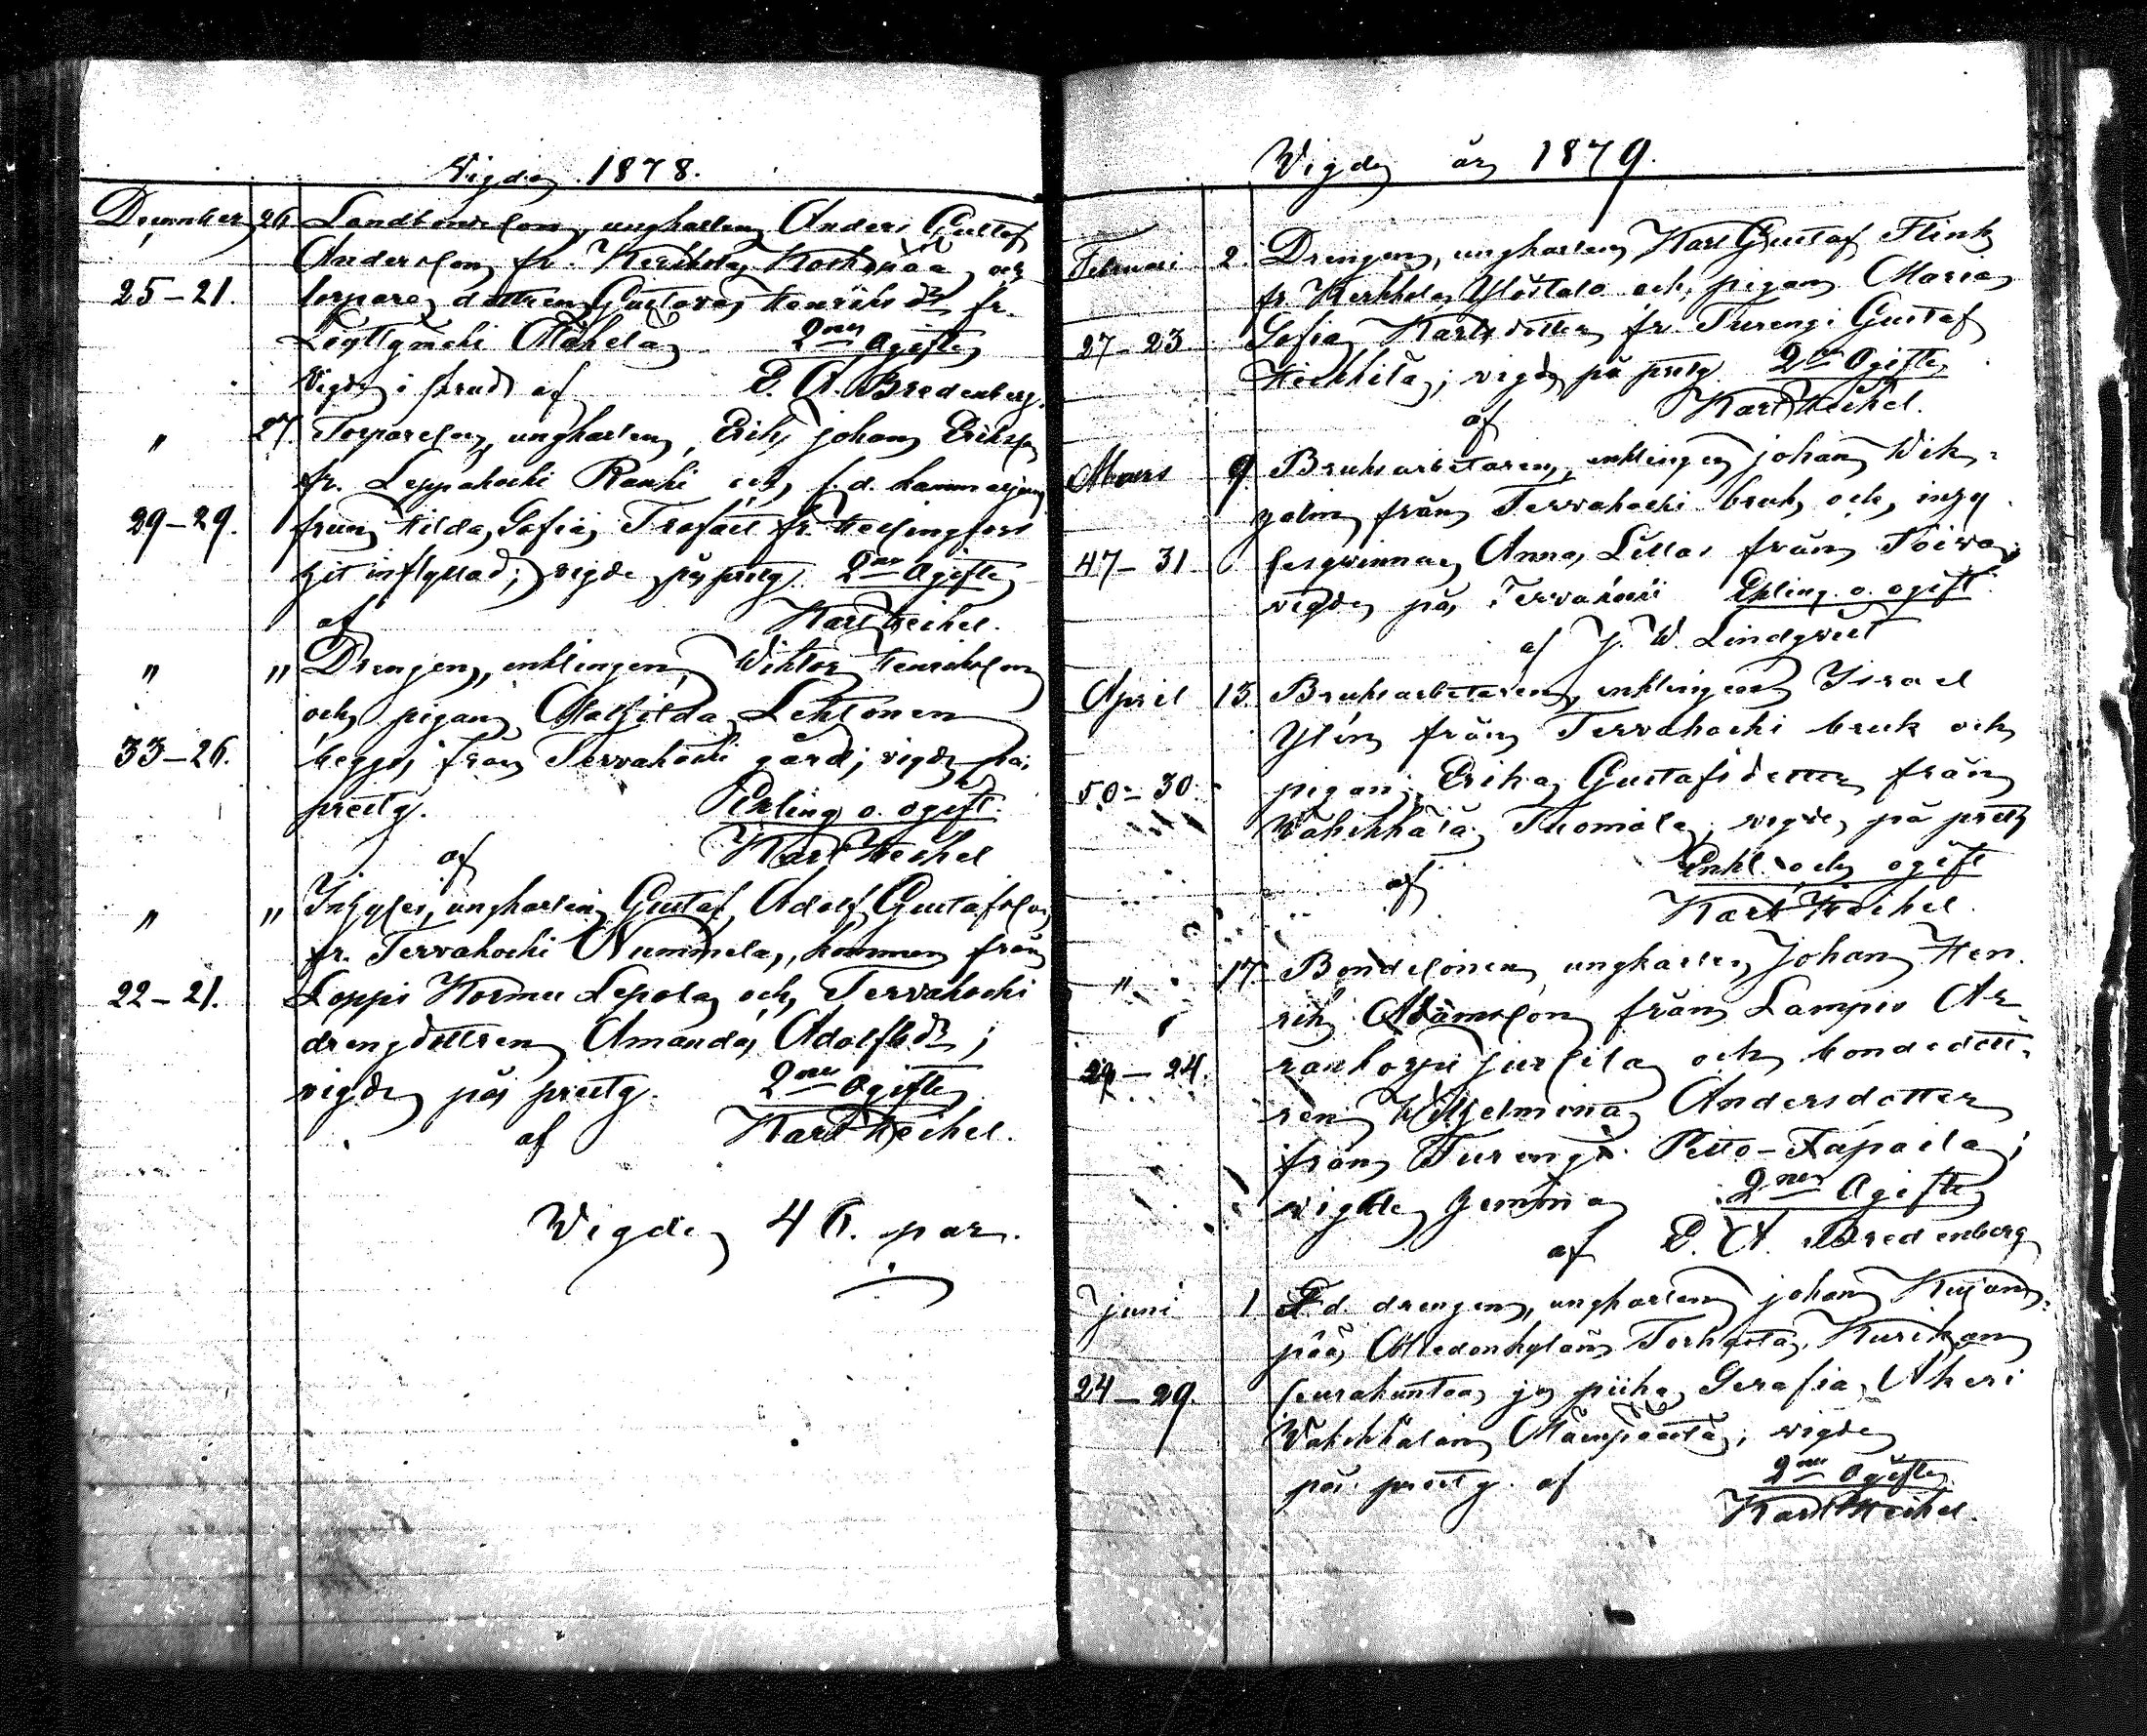 Vigde 1878.
December 26 Landbondeson, ungkarlen Anders Gustaf
Andersson fr. Kerkkola och
25–21. torpare dottren Gustava Henriksdr fr.
Löyttymäki Mäkelä 2ne Ogifte
Vigde i af E. A. Bredenberg.
" 27. Torpareson, ungkarlen Erik Johan Eriksson
fr. Leppäkoski Rauhi och f.d. kammarjung
29–29. frun Hilda Sofia fr. Helsingfors
hit inflyttad; vigde på prestg. 2ne Ogifte
af Karl Heikel.
" " Drengen, enklingen Wiktor Henriksson
och pigan Mathilda Lehtonen
33–26. begge från Tervakoski gård; vigde på
prestg. Enkling o. ogift.
af Karl Heikel
" " Inhyses, ungkarlen Gustaf Adolf Gustafsson
fr. Tervakoski Nummela, kommen från
22–21. Loppis Kormu Lepola och Tervakoski
drengdottren Amanda Adolfsdr;
vigde på prestg. 2ne Ogifte
af Karl Heikel.
Vigde 46. par.
Vigde år 1879.
Februari 2. Drengen, ungkarlen Karl Gustaf Flink
fr. Kerkkola Ylöstalo och pigan Maria
27–23 Sofia Karlsdotter fr. Turengi Gustaf
Heikkilä; vigde på prestg. 2ne Ogifte
af Karl Heikel.
Mars 9. Bruksarbetaren, enklingen Johan Wik-
från Tervakoski bruk och inhy
47–31 sesqvinnan Anna från Toivo
vigde på Tervakoski Enkling. o. ogift.
af J. W. Lindqvist
April 13. Bruksarbetaren, enklingen Israel
Ylén från Tervakoski bruk och
50–30 pigan Erika Gustafsdotter från
Vähikkälä Tuomola, vigde på prestg
Enkl. och ogift
af Karl Heikel.
" 17. Bondesonen, ungkarlen Johan Hen-
rik Adamsson från Lampis Ar-
24. rankorpi och bondedott-
ren Wilhelmina Andersdotter
från Turengi
vigde hemma 2ne Ogifte
af E. A. Bredenberg
Juni 1 F.d. drengen, ungkarlen Johan
pää Kurikan
24–29. seurakuntaa ja piika Serafia
Vähikkälän vigde
på prestg. af 2ne Ogifte
Karl Heikel.